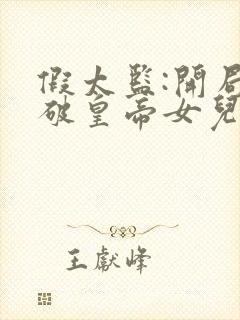 假太監:開局
破皇帝女兒
王獻峰